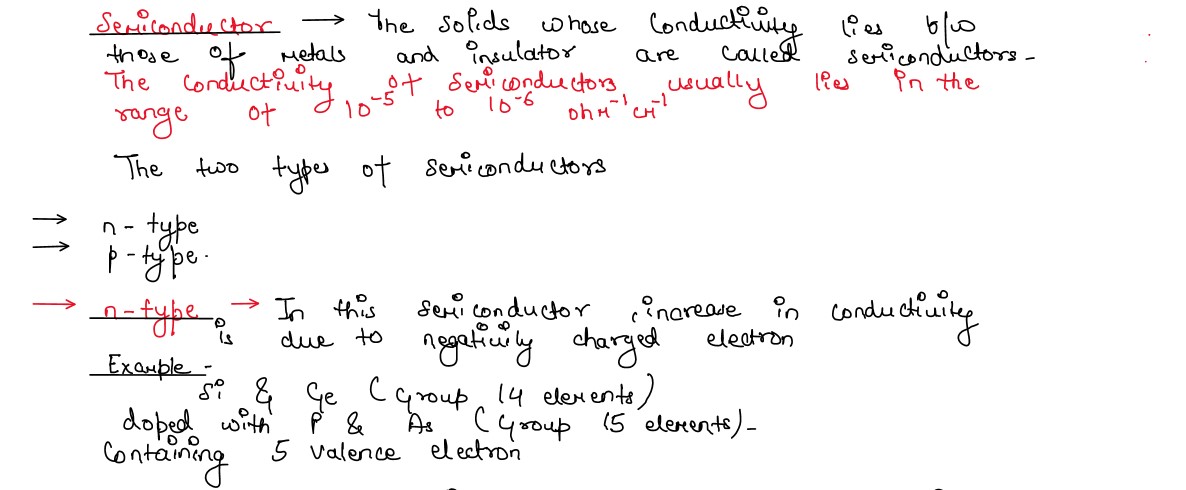 Semiconductor → The solids whose Conductivity lies b/w
those of metals and insulator are called semiconductors-
The conductivity of Semiconductors usually lies in the
range of 10⁻⁵ to 10⁻⁶ ohm⁻¹cm⁻¹
The two types of semiconductors
→ n-type
→ p-type.
→ n-type → In this semiconductor, increase in conductivity
is due to negativily charged electron
Example -
Si & Ge (group 14 elements)
doped with P & As (Group 15 elements)-
Containing 5 valence electron